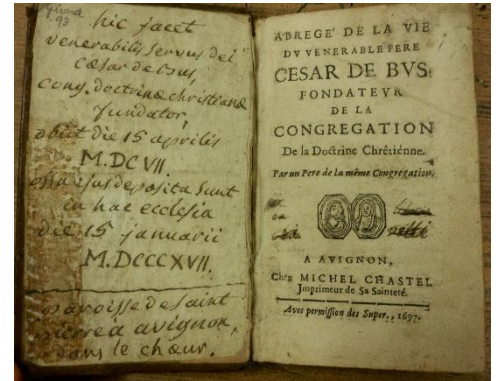 93
hic jacet
venerabilis servus dei
Cæsar de Bus,
cong. doctrinæ christianæ
fundator,
obiit die 15 aprilis
M.DC VII.
ossa ejus deposita sunt
in hac ecclesia
die 15 januarii
M.DCCCXVII.
paroisse de saint
pierre à avignon,
dans le chœur.
ABREGE' DE LA VIE
DV VENERABLE PERE
CESAR DE BVS,
FONDATEVR
DE LA
CONGREGATION
De la Doctrine Chrêtiénne.
Par un Pere de la même Congregation.
A AVIGNON,
Chez MICHEL CHASTEL
Imprimeur de Sa Sainteté.
Avec permission des Super., 1697.